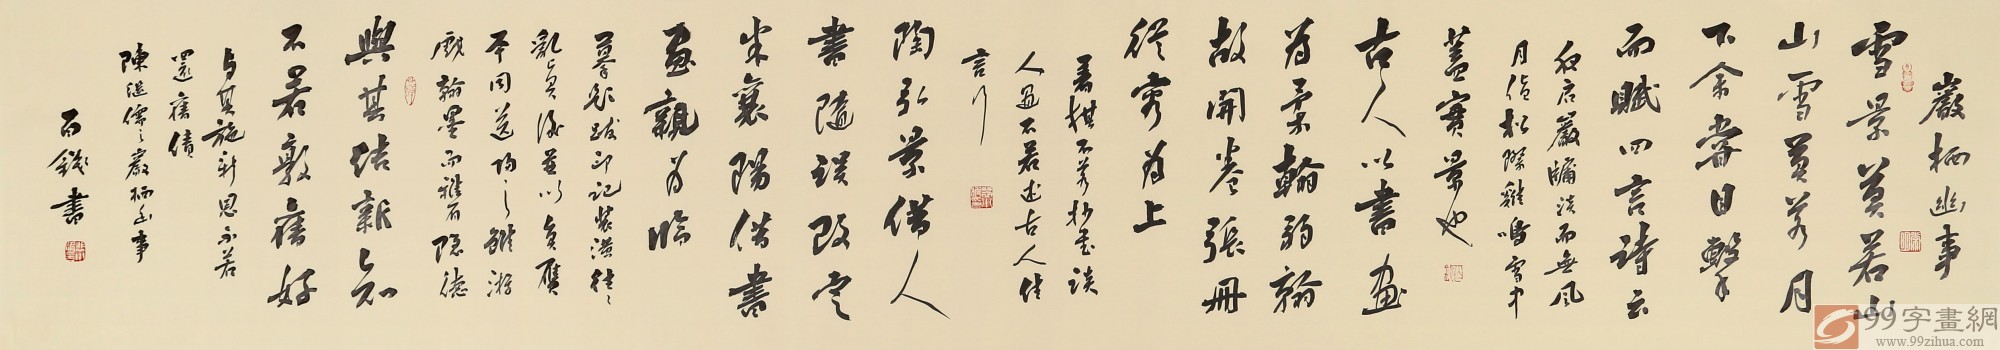 巖栖幽事
雪景莫若山
山雪莫若月
下余嘗目擊
而賦四言詩云
夜启巖牖淡而無風
月值松隙雞鳴雪中
蓋實景也
古人以書畫
為柔翰弱翰
故開卷張冊
從容為上
著棋不若抄書談
人過不若述古人佳
言行
陶弘景借人
書隨誤改定
米襄陽借書
畫親為臨
摹題跋印記裝潢往々
亂真後並以真贗
本同送歸之雖游
戲翰墨而雅有隱德
與其結新知
不若敦舊好
與其施新恩不若
還舊債
陳繼儒之巖栖幽事
石鐵書
99字畫網
www.99zihua.com